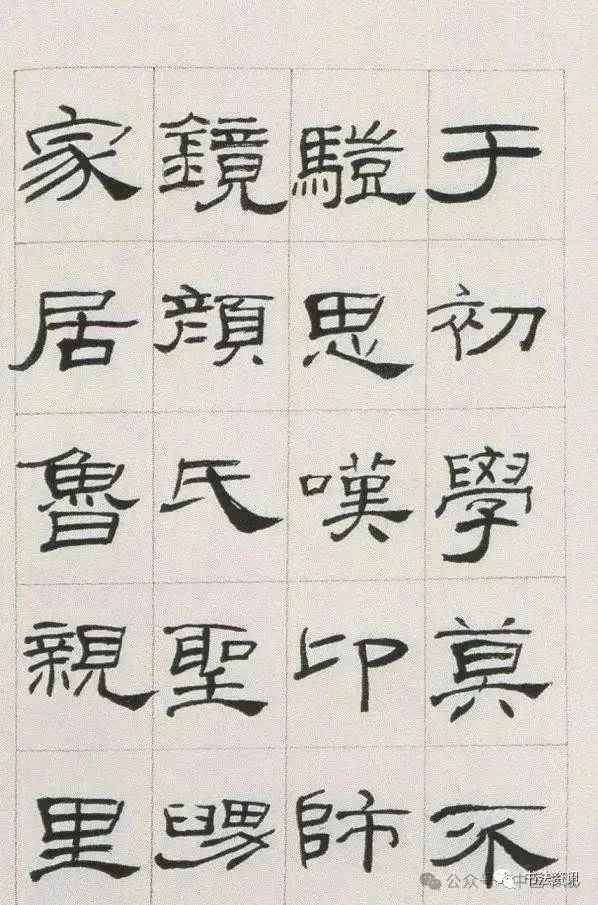 于初學莫不
騹思嘆卬師
鏡顏氏聖舅
家居魯親里
公众号
书法资讯